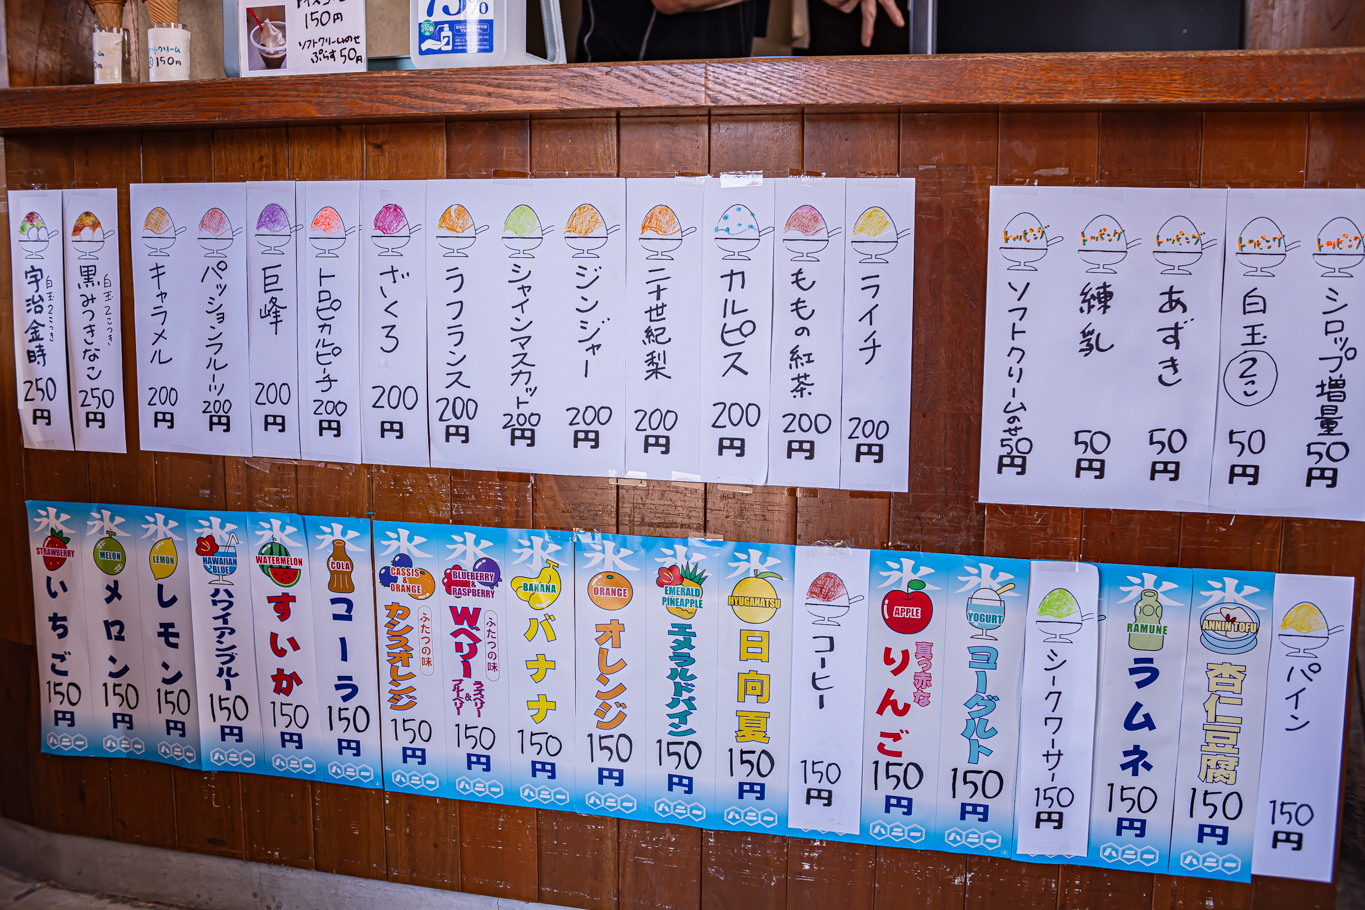 クリーム
150円
アイスコーヒー
150円
ソフトクリームのせ
ぷらす50円
75%
宇治金時
白玉2こつき
250
円
黒みつきなこ
白玉2こつき
250
円
キャラメル
200
円
パッションフルーツ
200
円
巨峰
200
円
トロピカルピーチ
200
円
ざくろ
200
円
ラフランス
200
円
シャインマスカット
200
円
ジンジャー
200
円
二十世紀梨
200
円
カルピス
200
円
ももの紅茶
200
円
ライチ
200
円
トッピング
ソフトクリームのせ
50
円
トッピング
練乳
50
円
トッピング
あずき
50
円
トッピング
白玉2こ
50
円
トッピング
シロップ増量
50
円
氷
STRAWBERRY
いちご
150
円
ハニー
氷
MELON
メロン
150
円
ハニー
氷
LEMON
レモン
150
円
ハニー
氷
HAWAIIAN BLUE
ハワイアンブルー
150
円
ハニー
氷
WATERMELON
すいか
150
円
ハニー
氷
COLA
コーラ
150
円
ハニー
氷
CASSIS & ORANGE
ふたつの味
カシスオレンジ
150
円
ハニー
氷
BLUEBERRY & RASPBERRY
ふたつの味
Wベリー
ラズベリー&ブルーベリー
150
円
ハニー
氷
BANANA
バナナ
150
円
ハニー
氷
ORANGE
オレンジ
150
円
ハニー
氷
EMERALD PINEAPPLE
エメラルドパイン
150
円
ハニー
氷
HYUGANATSU
日向夏
150
円
ハニー
コーヒー
150
円
氷
APPLE
真っ赤な
りんご
150
円
ハニー
氷
YOGURT
ヨーグルト
150
円
ハニー
シークワーサー
150
円
氷
RAMUNE
ラムネ
150
円
ハニー
氷
ANNIN TOFU
杏仁豆腐
150
円
ハニー
パイン
150
円